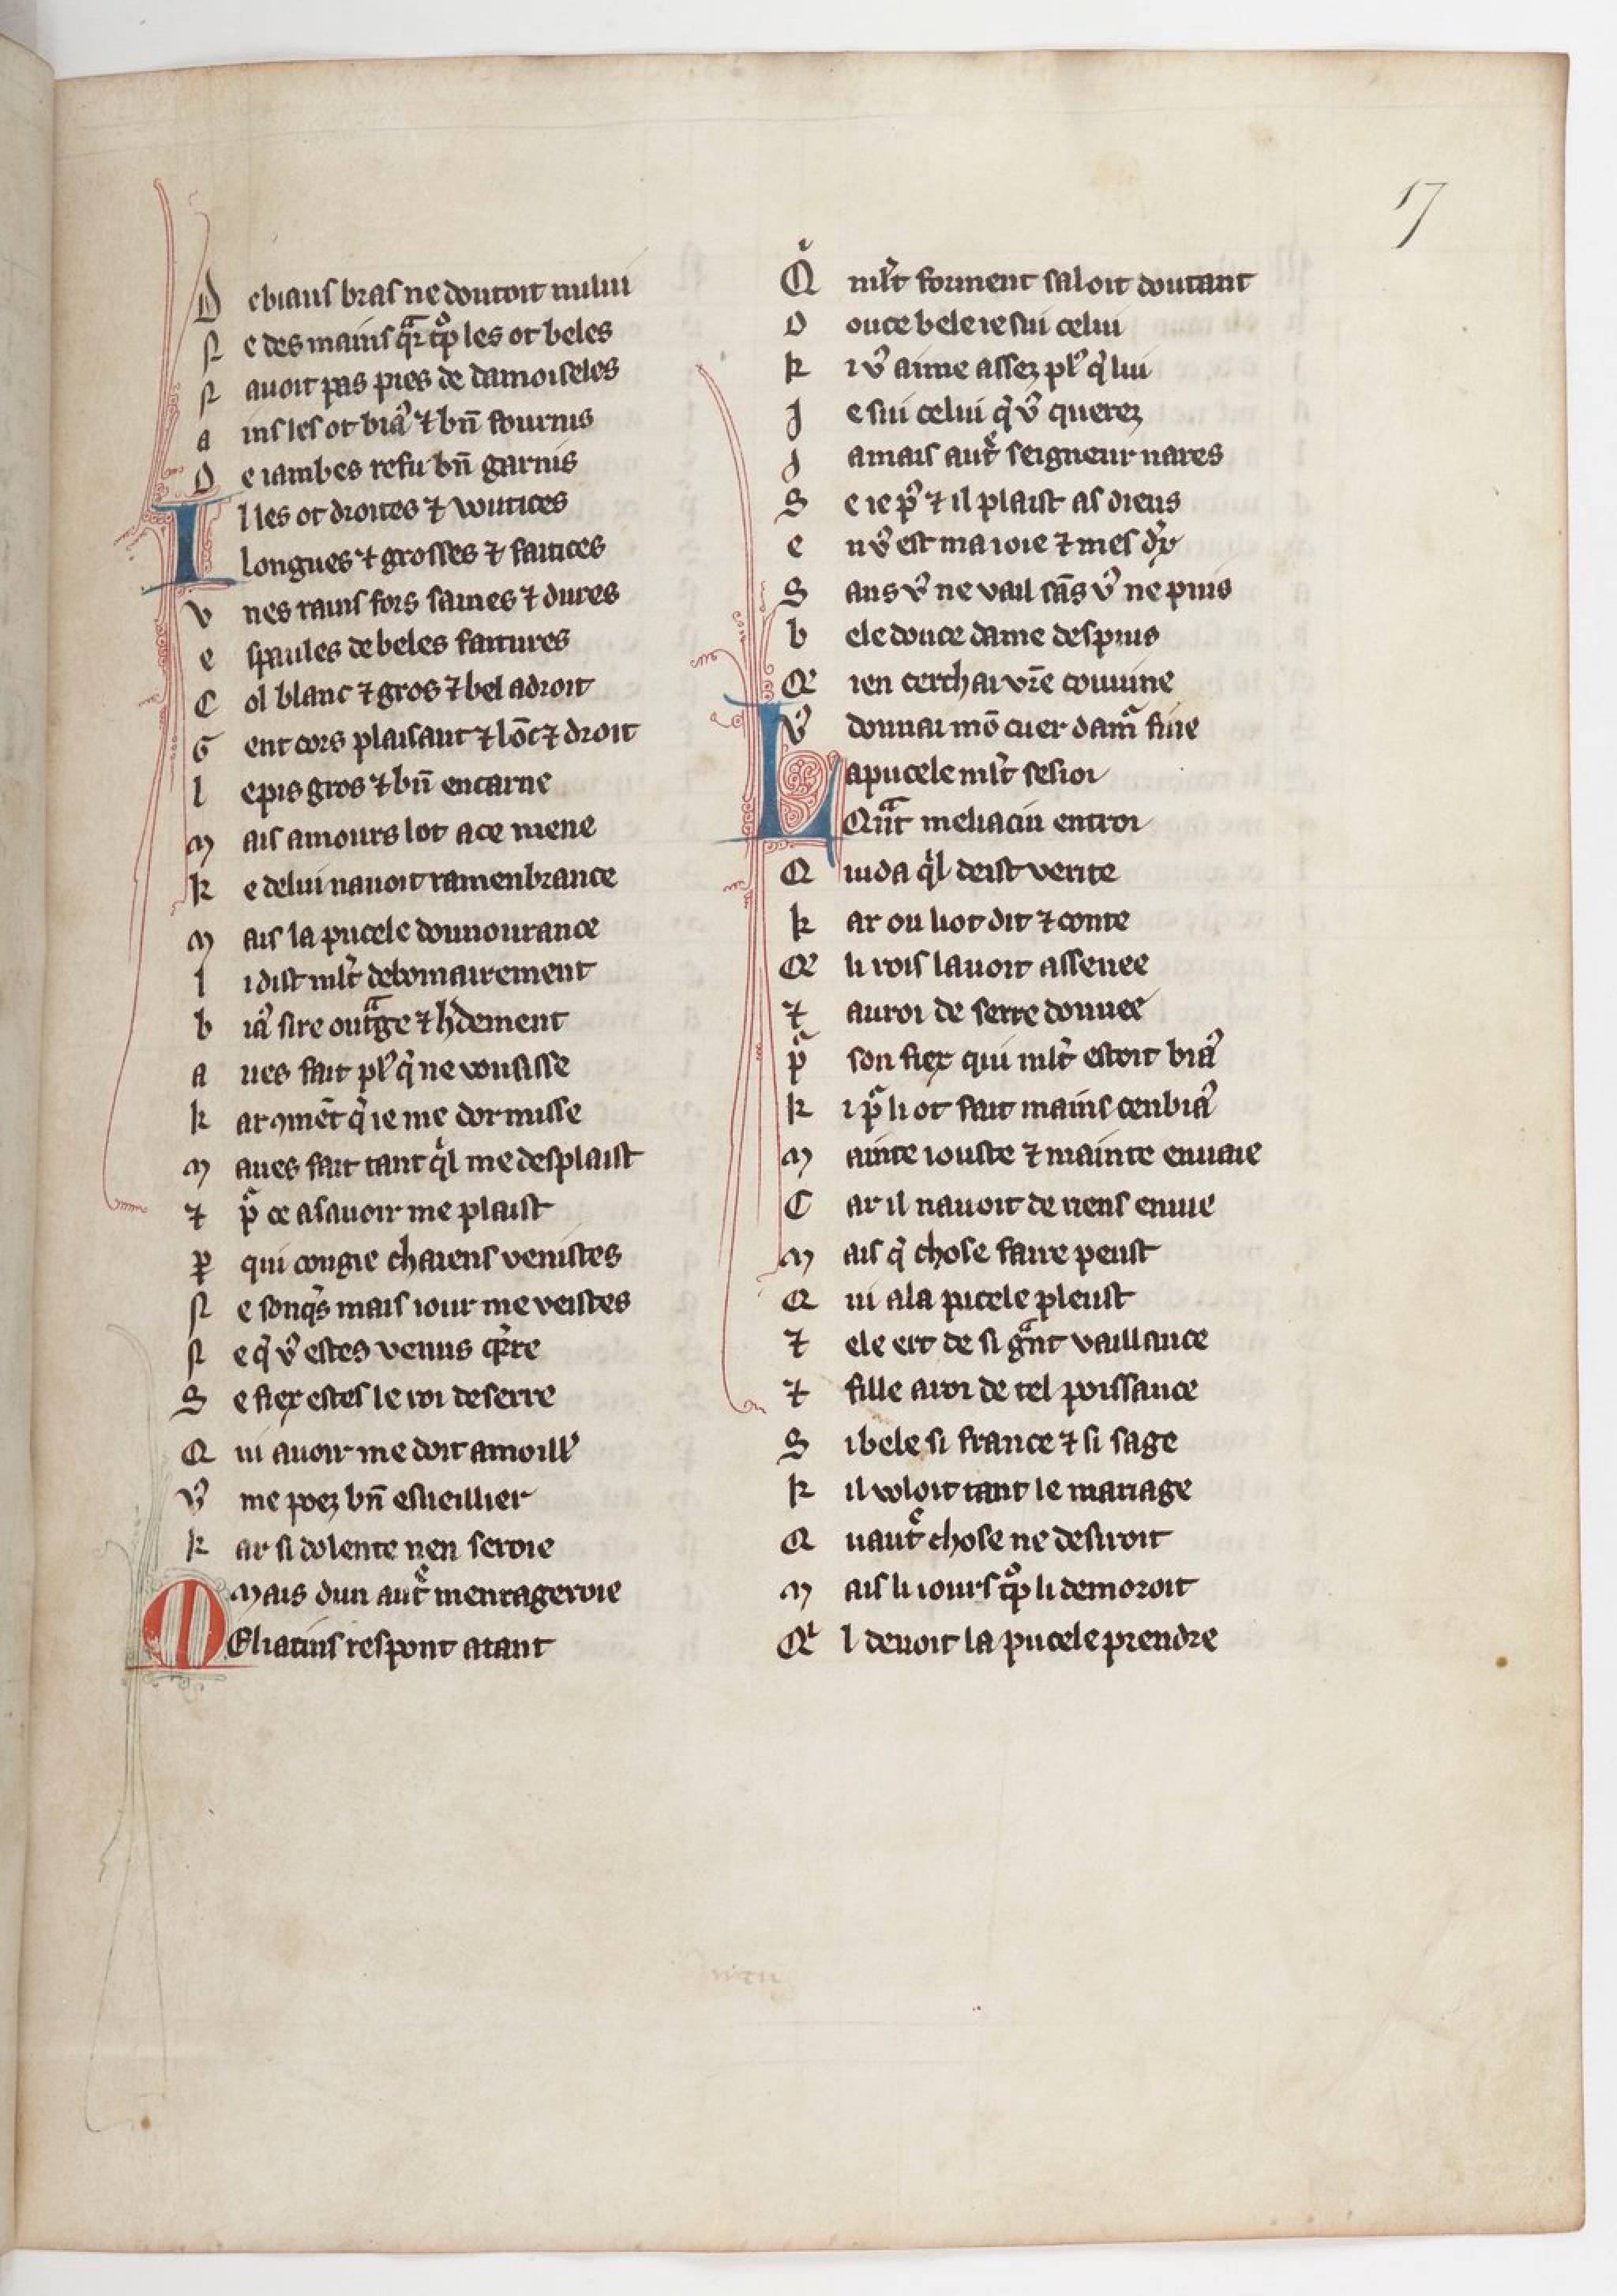 17
D ebiaus bras ne doutoit nului
N e des mains q̄r tͦp les ot beles
N auoit pas pies de damoiseles
A ins les ot biaꝰ ⁊ bn̄ fournis
D e iambes refu bn̄ garnis
I l les ot droites ⁊ voutices
longues ⁊ grosses ⁊ faitices
V nes rains fors saines ⁊ dures
E spaules de beles faitures
C ol blanc ⁊ gros ⁊ bel adroit
G ent cors plaisant ⁊ lōc ⁊ droit
l e pis gros ⁊ bn̄ encarne
M ais amours lot a ce mene
k e de lui nauoit ramenbrance
M ais la pucele dounourance
l i dist ml̄t debonairement
b iaꝰ sire outᵃge ⁊ hdement
A ues fait plꝰ q̄ ne vousisse
k ar ꝯmēt q̄ ie me dormisse
M aues fait tant qͥl me desplaist
⁊ pͬ ce asauoir me plaist
P̱ qui congie chaiens venistes
N e sonq̄s mais iour me veistes
N e q̄ vꝰ estes venus q̄rre
S e fiex estes le roi de serre
Q ui auoir me doit a moillꝰ
Vꝰ me poez bn̄ esueillier
k ar si dolente nen seroie
Mais dun autͤ menrageroie
MEliacins respont atant
Qͥ ml̄t forment saloit doutant
D ouce bele ie sui celui
k i vꝰ aime assez plꝰ q̄ lui
J e sui celui q̄ vꝰ querez
J amais autͤ seigneur nares
S e ie pꝰ ⁊ il plaist as dieus
E n vꝰ est ma ioie ⁊ mes dꝰx
S ans vꝰ ne vail sās vꝰ ne puis
b ele douce dame despuis
Qe ien cerchai vr̄e couuine
Vꝰ donnai mō cuer damͣ fine
L a pucele ml̄t sesioi
Qn̄t meliacin entroi
Q uida qͥl deist verite
k ar ou li ot dit ⁊ conte
Qe li rois lauoit assenee
⁊ au roi de serre donnee
pͬ son fiex qui ml̄t estoit biaꝰ
k i pͬ li ot fait mains cenbiaꝰ
M ainte iouste ⁊ mainte enuaie
C ar il nauoit de riens enuie
M ais q̄ chose faire peust
Q ui a la pucele pleust
⁊ ele ert de si gᵃnt vaillance
⁊ fille a roi de tel poissance
S i bele si france ⁊ si sage
k il voloit tant le mariage
Q uautͤ chose ne desiroit
M ais li iours tͦp li demoroit
Qͥ l deuoit la pucele prendre